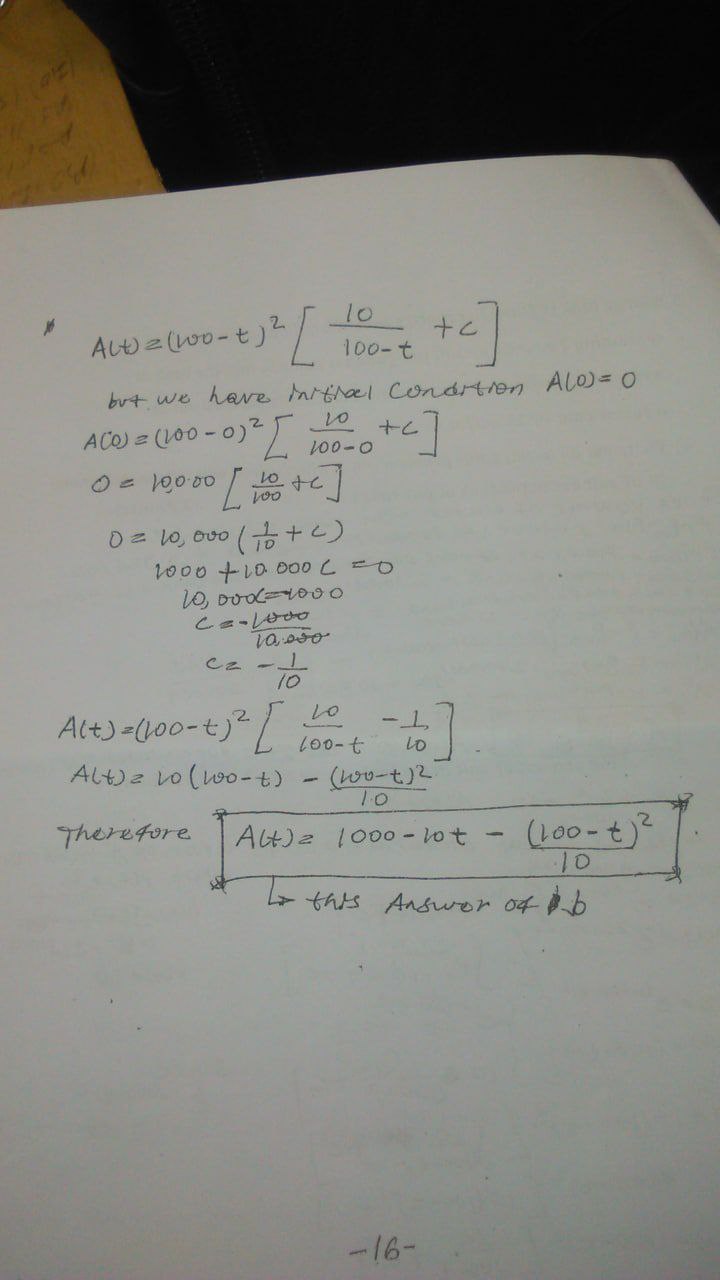 A(t) = (100-t)² [ 10/(100-t) + c ]
but we have initial condition A(0) = 0
A(0) = (100-0)² [ 10/(100-0) + c ]
0 = 100.00 [ 10/100 + c ]
0 = 10,000 ( 1/10 + c )
1000 + 10.000 c = 0
10,000c = -1000
c = -1000/10.000
c = - 1/10
A(t) = (100-t)² [ 10/(100-t) - 1/10 ]
A(t) = 10(100-t) - (100-t)²/10
Therefore A(t) = 1000 - 10t - (100-t)²/10
↳ this Answer of b
-16-